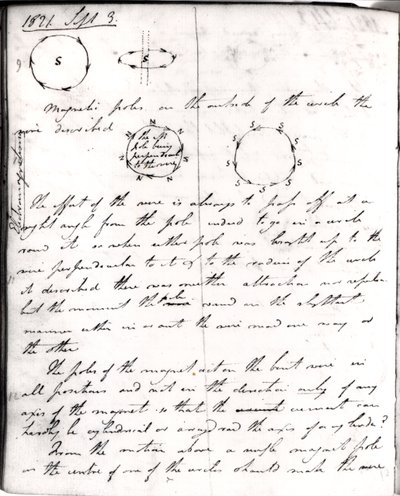 1821 Sept 3.
S
S
Magnetic poles on the outside of the circle the
wire described
N
N
N
N
N
N
the
pole being
perpendicular
to the wire
S
S
S
S
S
S
S
S
The effort of the wire is always to pass off at a
right angle from the pole indeed to go in a circle
round it so when either pole was brought up to the
wire perpendicular to it & to the radius of the circle
it described there was neither attraction nor repulsion
but the moment the pole in the slightest
manner either in or out the wire moved one way or
the other
The poles of the magnet act on the bent wire in
all positions and not in the direction only of any
axis of the magnet so that the current can
hardly be cylindrical or arranged round the axis of a cylinder?
From the motion above a single magnet pole
in the centre of one of the circles should make the wire